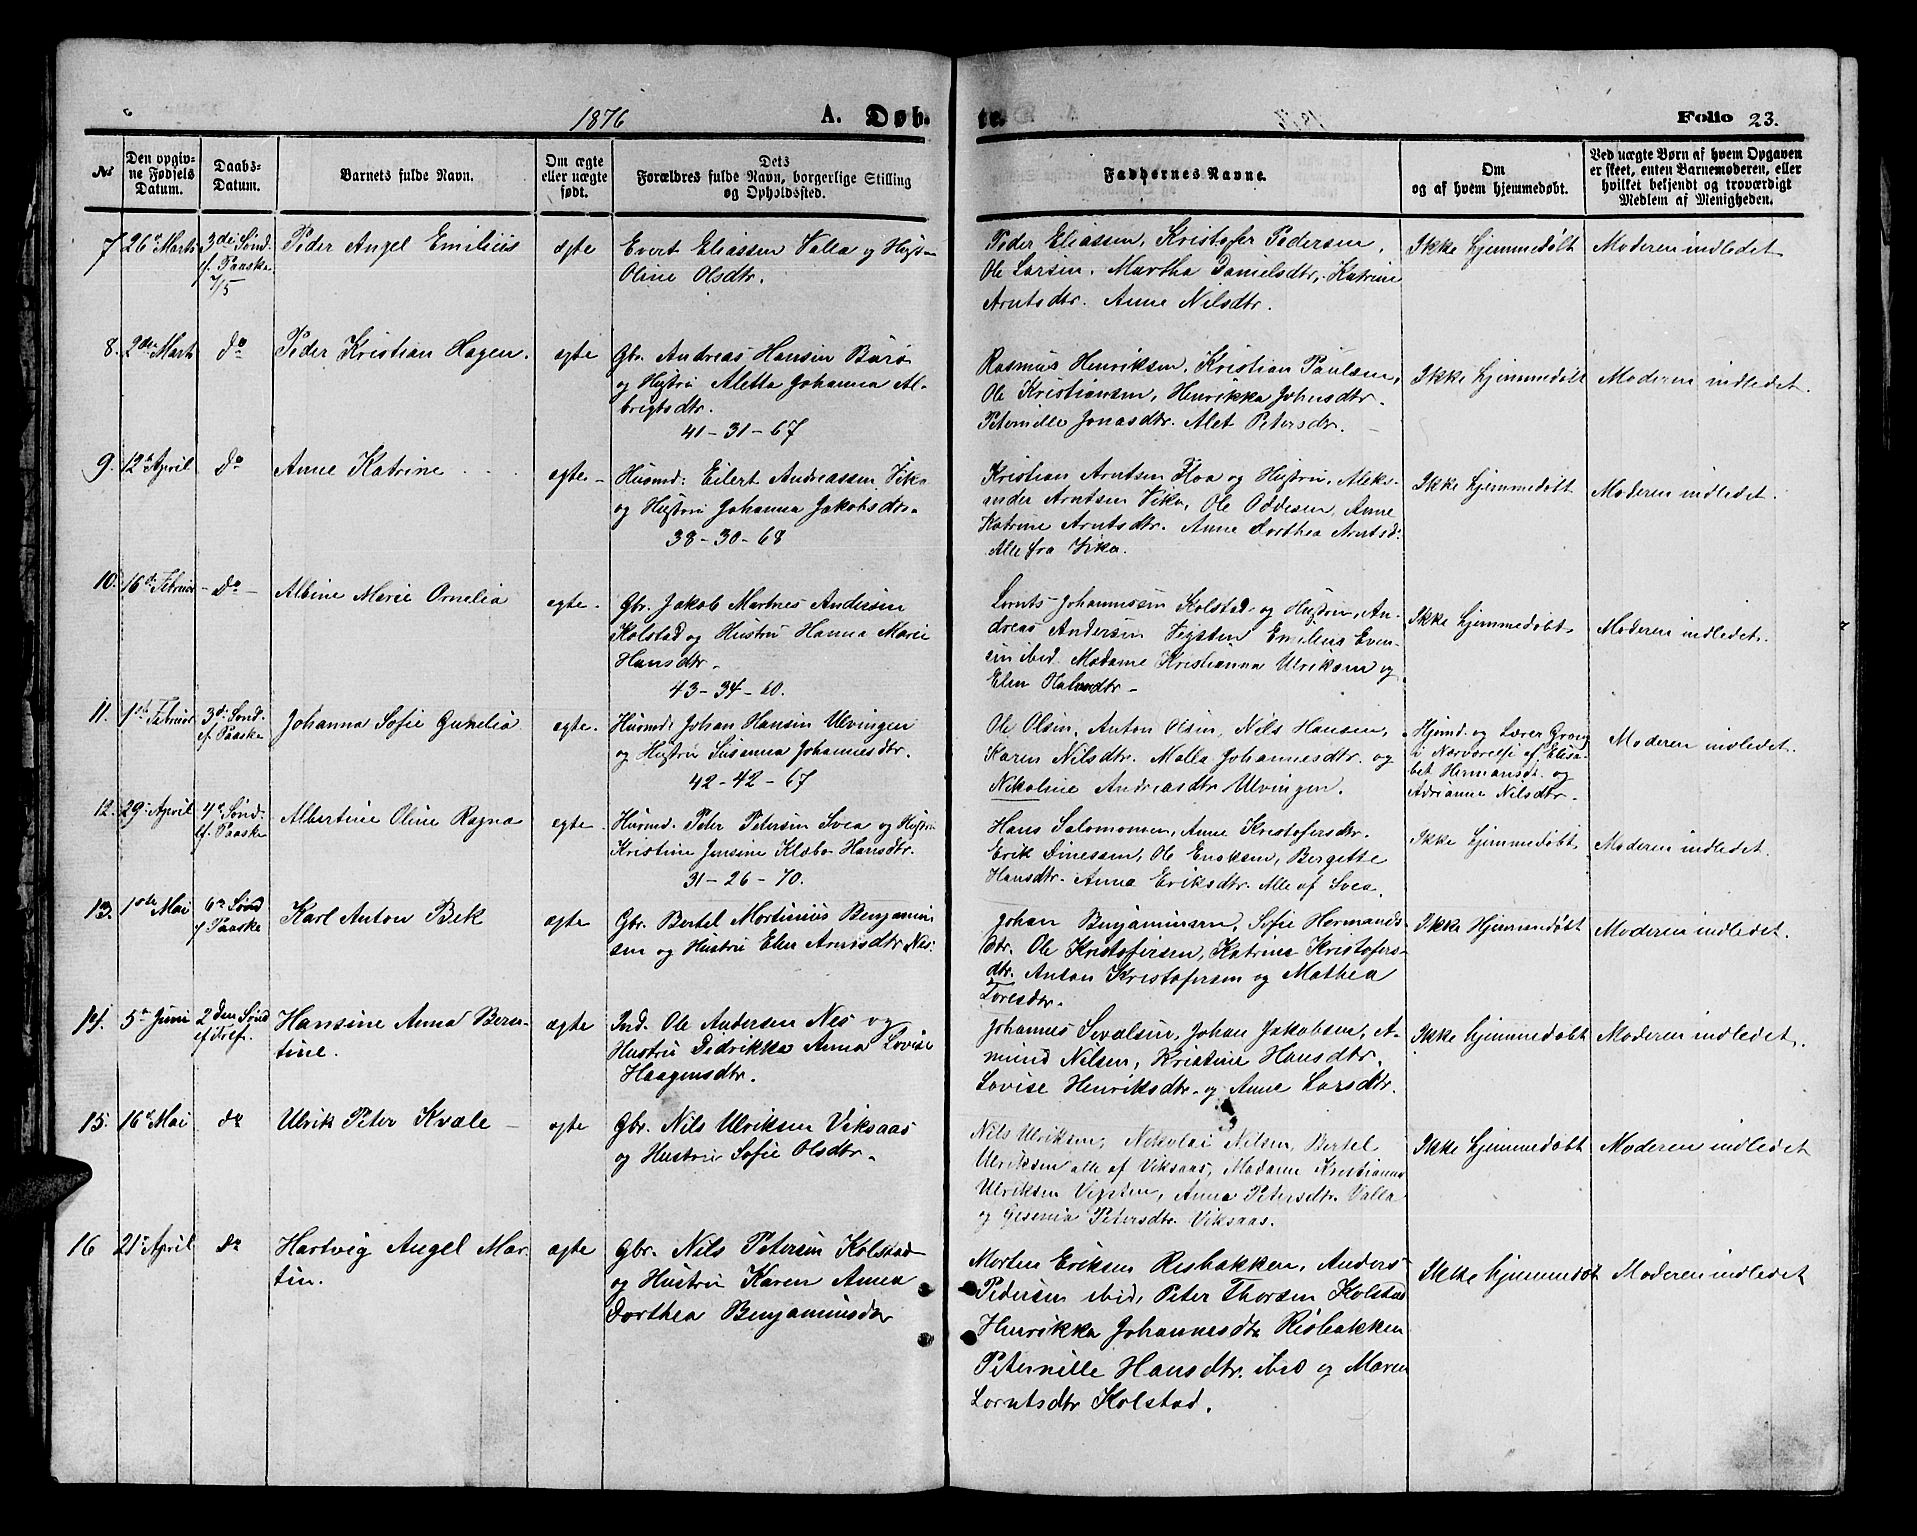 1876 A. Døb- te. Folio 23.
No
Den opgivne Fødsels Datum.
Daabs-Datum.
Barnets fulde Navn.
Om ægte eller uægte født.
Dets Forældres fulde Navn, borgerlige Stilling og Opholdssted.
Faddernes Navne.
Om og af hvem hjemmedøbt.
Ved uægte Børn af hvem Opgaven er skeet, enten Barnemoderen, eller hvilket bekjendt og troværdigt Medlem af Menigheden.
7 26de Marts 3die Sønd. Peder Angel Emilius egte Evert Eliassen Valla og Hustr.
ef. Paaske Oline Olsdtr.
7/5
Peder Eliassen, Kristofer Pedersen,
Ole Larsen, Martha Danielsdtr, Katrine
Arntsdtr. Anne Nilsdtr.
Ikke hjemmedøbt Moderen indledet
8. 2den Marts do Peder Kristian Hagen. egte Gbr. Andreas Hansen Burø
og Hustru Aletta Johanna Al-
brigtsdtr.
41-31-67
Rasmus Henriksen, Kristian Paulsen,
Ole Kristiansen, Henrikka Johnsdtr.
Peternille Jonasdtr. Alet Petersdtr.
Ikke hjemmedøbt Moderen indledet.
9. 12te April do Anne Katrine egte Husmd: Eilert Andreassen Vika
og Hustru Johanna Jakobsdtr.
38-30-68
Kristian Arntsen Floa og Hustru, Aleks-
ander Arntsen Vika, Ole Oddesen, Anne
Katrine Arntsdtr. Anne Dorthea Arntsd.
Alle fra Vika.
Ikke hjemmedøbt Moderen indledet.
10. 16de Februar do Albine Marie Ornelia egte. Gbr. Jakob Martines Andersen
Kolstad og Hustru Hanna Marie
Hansdtr.
43-34-60.
Lornts Johannesen Kolstad og Hustru, An-
dreas Andersen Vegsten Emilius Even-
sen ibid. Madame Kristianna Ulriksen og
Elen
Ikke hjemmedøbt Moderen indledet.
11. 1ste Februar 3die Sønd. Johanna Sofie Gunelia egte. Husmd: Johan Hansen Ulvingen
ef. Paaske og Hustru Susanna Johannesdtr.
42-42-67
Ole Olsen, Anton Olsen, Nils Hansen,
Karen Nilsdtr. Malla Johannesdtr. og
Nikoline Andreasdtr Ulvingen.
Hjemd. og Lærer Grong
i Nærværelse af Elisa-
bet Hermansdr. og
Adrianne Nilsdtr.
Moderen indledet.
12. 29de April 4de Sønd. Albertine Oline Ragna egte Husmd. Peter Petersen Svea og Hustru
ef. Paaske Kristine Jensine Klæbo Hansdtr.
31-26-70.
Hans Salomonsen, Anne Kristofersdtr.
Erik Dinessen, Ole Enoksen, Bergette
Hansdtr. Anna Eriksdtr. Alle af Svea.
Ikke hjemmedøbt Moderen indledet.
13. 10de Mai 6te Sønd Karl Anton Bek egte Gbr. Bertel Mortinius Benjamin
ef Paaske sen og Hustru Elen Arntsdtr Nes.
Johan Benjaminsen, Sofie Hermands-
dtr. Ole Kristofersen, Katrine Kristofers-
dtr. Anton Kristofersen og Mathea
Toresdtr.
Ikke Hjemmedøbt Moderen indledet.
14. 5te Juni 2den Sønd Hansine Anna Bern- ægte Ind. Ole Andersen Nes og
ef Tref. tine. Hustru Dedrikka Anna Lovise
Haagensdtr.
Johannes Sevalsen, Johan Jakobsen, A-
mund Nilsen, Kristine Hansdtr.
Lovise Henriksdtr. og Anne Larsdtr.
Ikke hjemmedøbt Moderen indledet.
15. 16de Mai do Ulrik Peter Kvale egte Gbr. Nils Ulriksen Viksaas
og Hustru Sofie Olsdtr.
Nils Ulriksen, Nikolai Nilsen, Bertel
Ulriksen alle af Viksaas, Madame Kristianna
Ulriksen Vegsten, Anna Petersdtr Valla
og Gesenia Petersdtr. Viksaas.
Ikke hjemmedøbt Moderen indledet
16 21de April do Hartvig Angel Mar- ægte Gbr. Nils Petersen Kolstad
tin. og Hustru Karen Anna
Dorthea Benjaminsdtr
Morten Eriksen Resbakken, Anders
Pedersen ibid, Peter Thorsen Kolstad
Henrikka Johannesdtr Resbakken
Peternille Hansdtr. ibid og Maren
Lorntsdtr Kolstad.
Ikke hjemmedøbt Moderen indledet